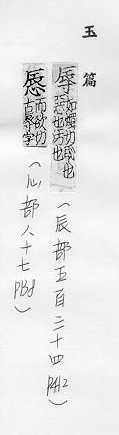 玉篇
辱 如燭切恥也惡也污也（辰部五百三十四 P412）
㥾 而欲切古辱字（心部八十七 P138）